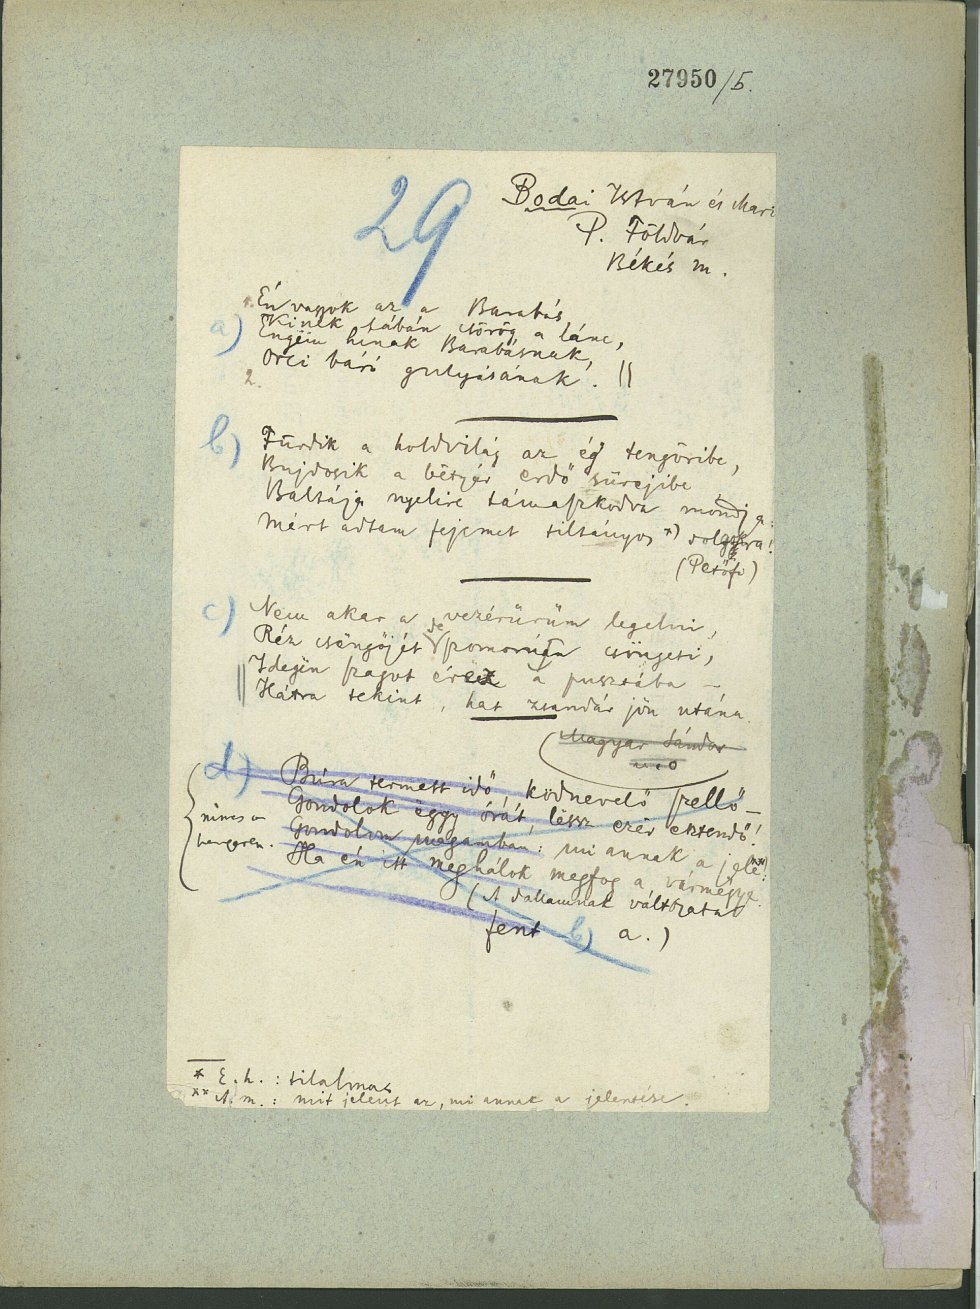 27950/5.
29
Bodai István és Mari
P. Földvár
Békés m.
1. Én vagyok az a Barabás,
Kinek lábán csörög a lánc,
a) Engëm hínak Barabásnak,
Orci báró gulyásának. ||
2.
b) Fürdik a holdvilág az ég tengöribe,
Bujdosik a bëtyár erdő sürejibe
Baltája nyelire támaszkodva mondja:
Mért adtam fejemet tiltányos *) dologra!
(Petőfi)
c) Nem akar a vezérürüm legelni,
Réz csëngőjét szomorúan csöngeti,
|| Idegën szagot érëz a pusztába –
Hátra tekint, hat zsandár jön utána.
(Magyar Sándor
d) Búra termett idő ködnevelő szellő –
Gondolok ëggy órát, lëssz ezër esztendő!
nincs a Gondolom magamban: mi annak a jele **)
hengeren. Ha én itt mëghálok megfog a vármëgye.
(A dallamnak változata
fent b) a.)
* E. h.: tilalmas
** A. m.: mit jelent az, mi annak a jelentése.